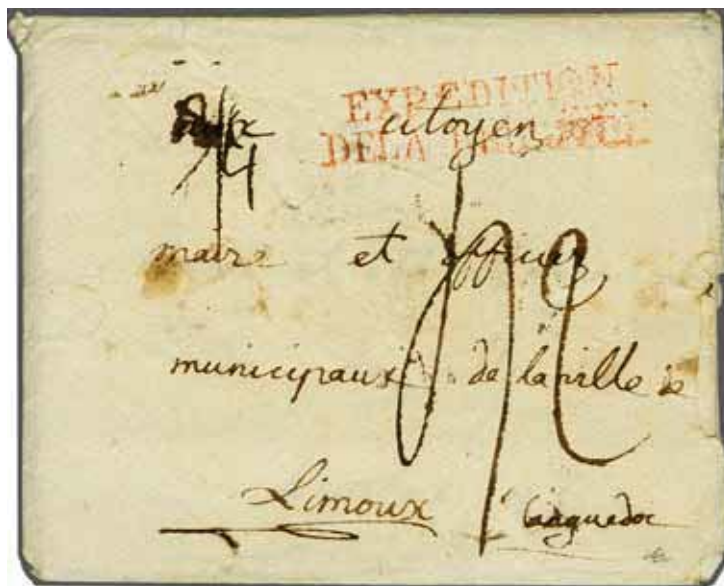 EXPEDITION
DE LA
aux citoyen
4
maire et officiers
municipaux de la ville de
Limoux Languedoc